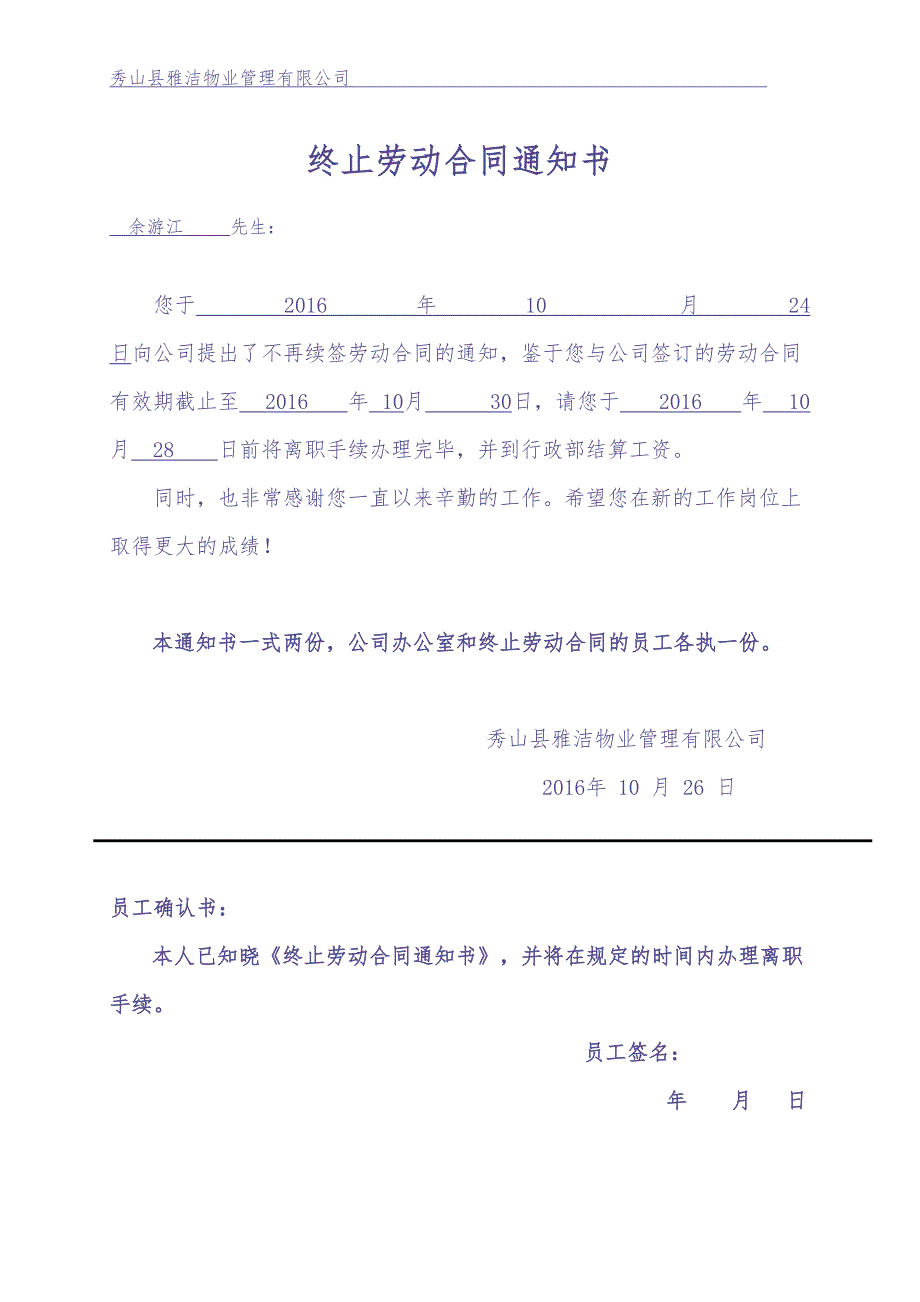 秀山县雅洁物业管理有限公司
终止劳动合同通知书
余游江 先生：
您于 2016 年 10 月 24
日向公司提出了不再续签劳动合同的通知，鉴于您与公司签订的劳动合同
有效期截止至 2016 年 10月 30日，请您于 2016 年 10
月 28 日前将离职手续办理完毕，并到行政部结算工资。
同时，也非常感谢您一直以来辛勤的工作。希望您在新的工作岗位上
取得更大的成绩！
本通知书一式两份，公司办公室和终止劳动合同的员工各执一份。
秀山县雅洁物业管理有限公司
2016年 10 月 26 日
员工确认书：
本人已知晓《终止劳动合同通知书》，并将在规定的时间内办理离职
手续。
员工签名：
年 月 日